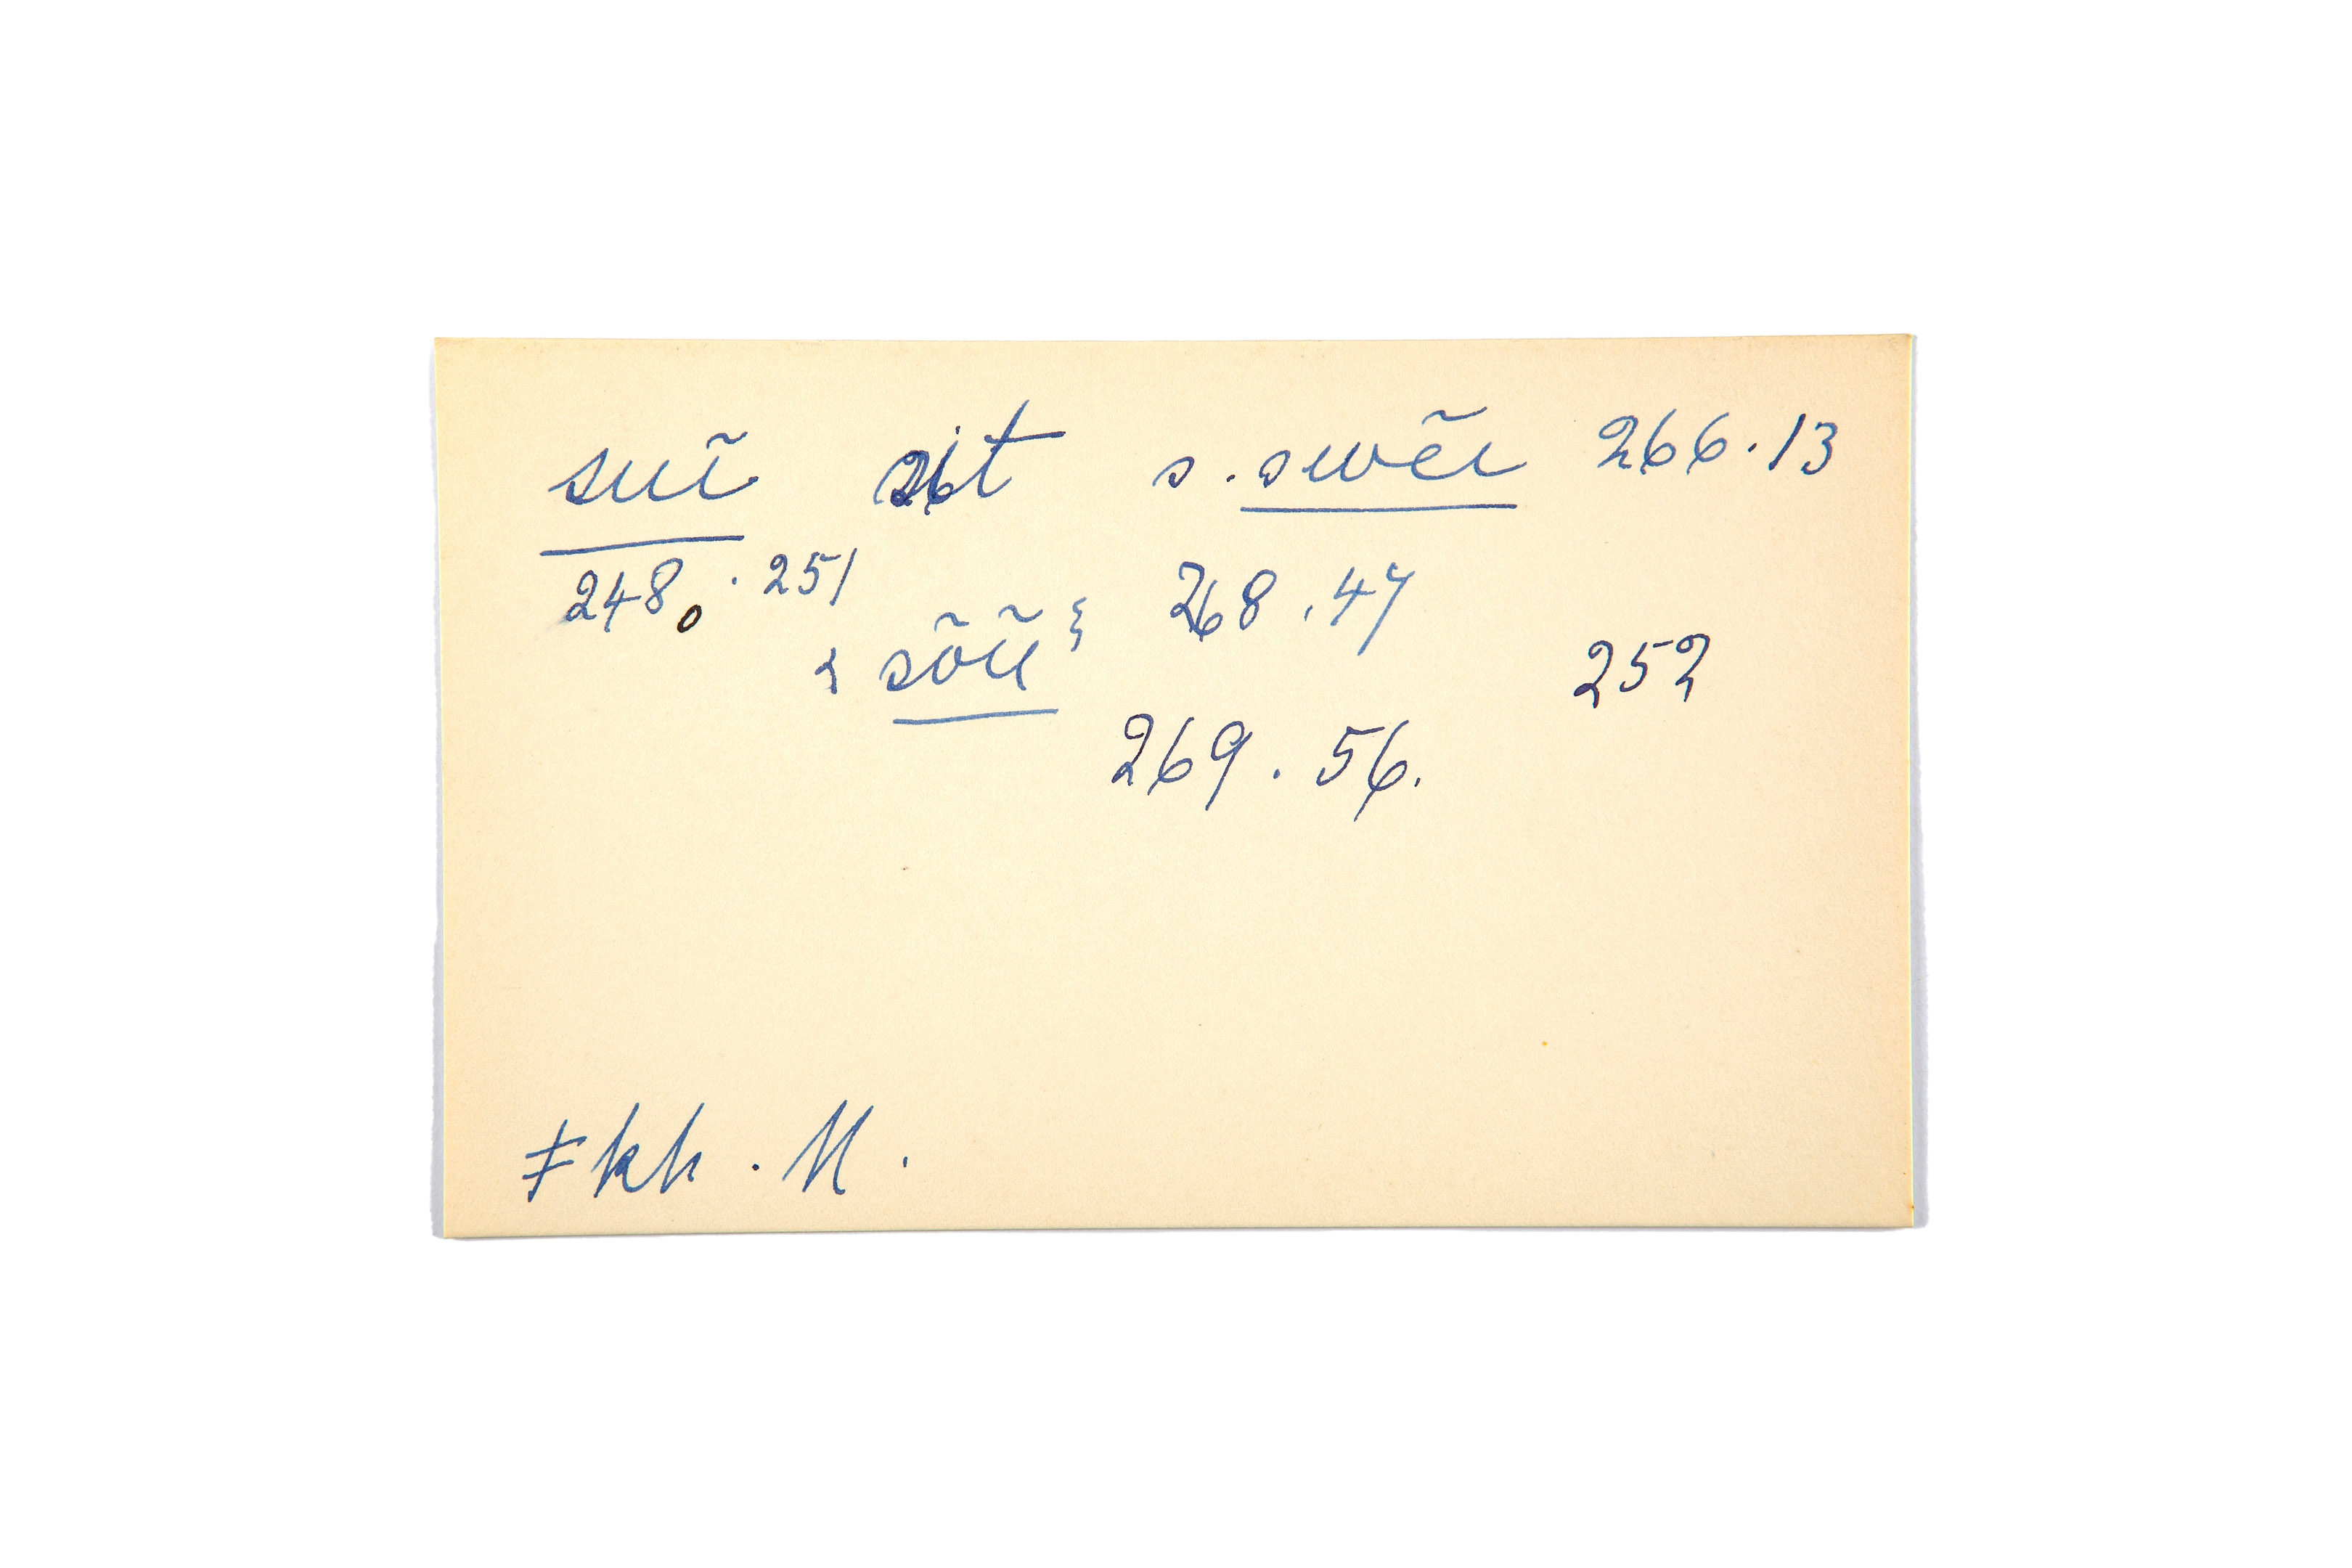 suĩ sit s. swẽi 266.13
248, . 251
sõũ 268.47
252
269.56.
ǂkh. M.